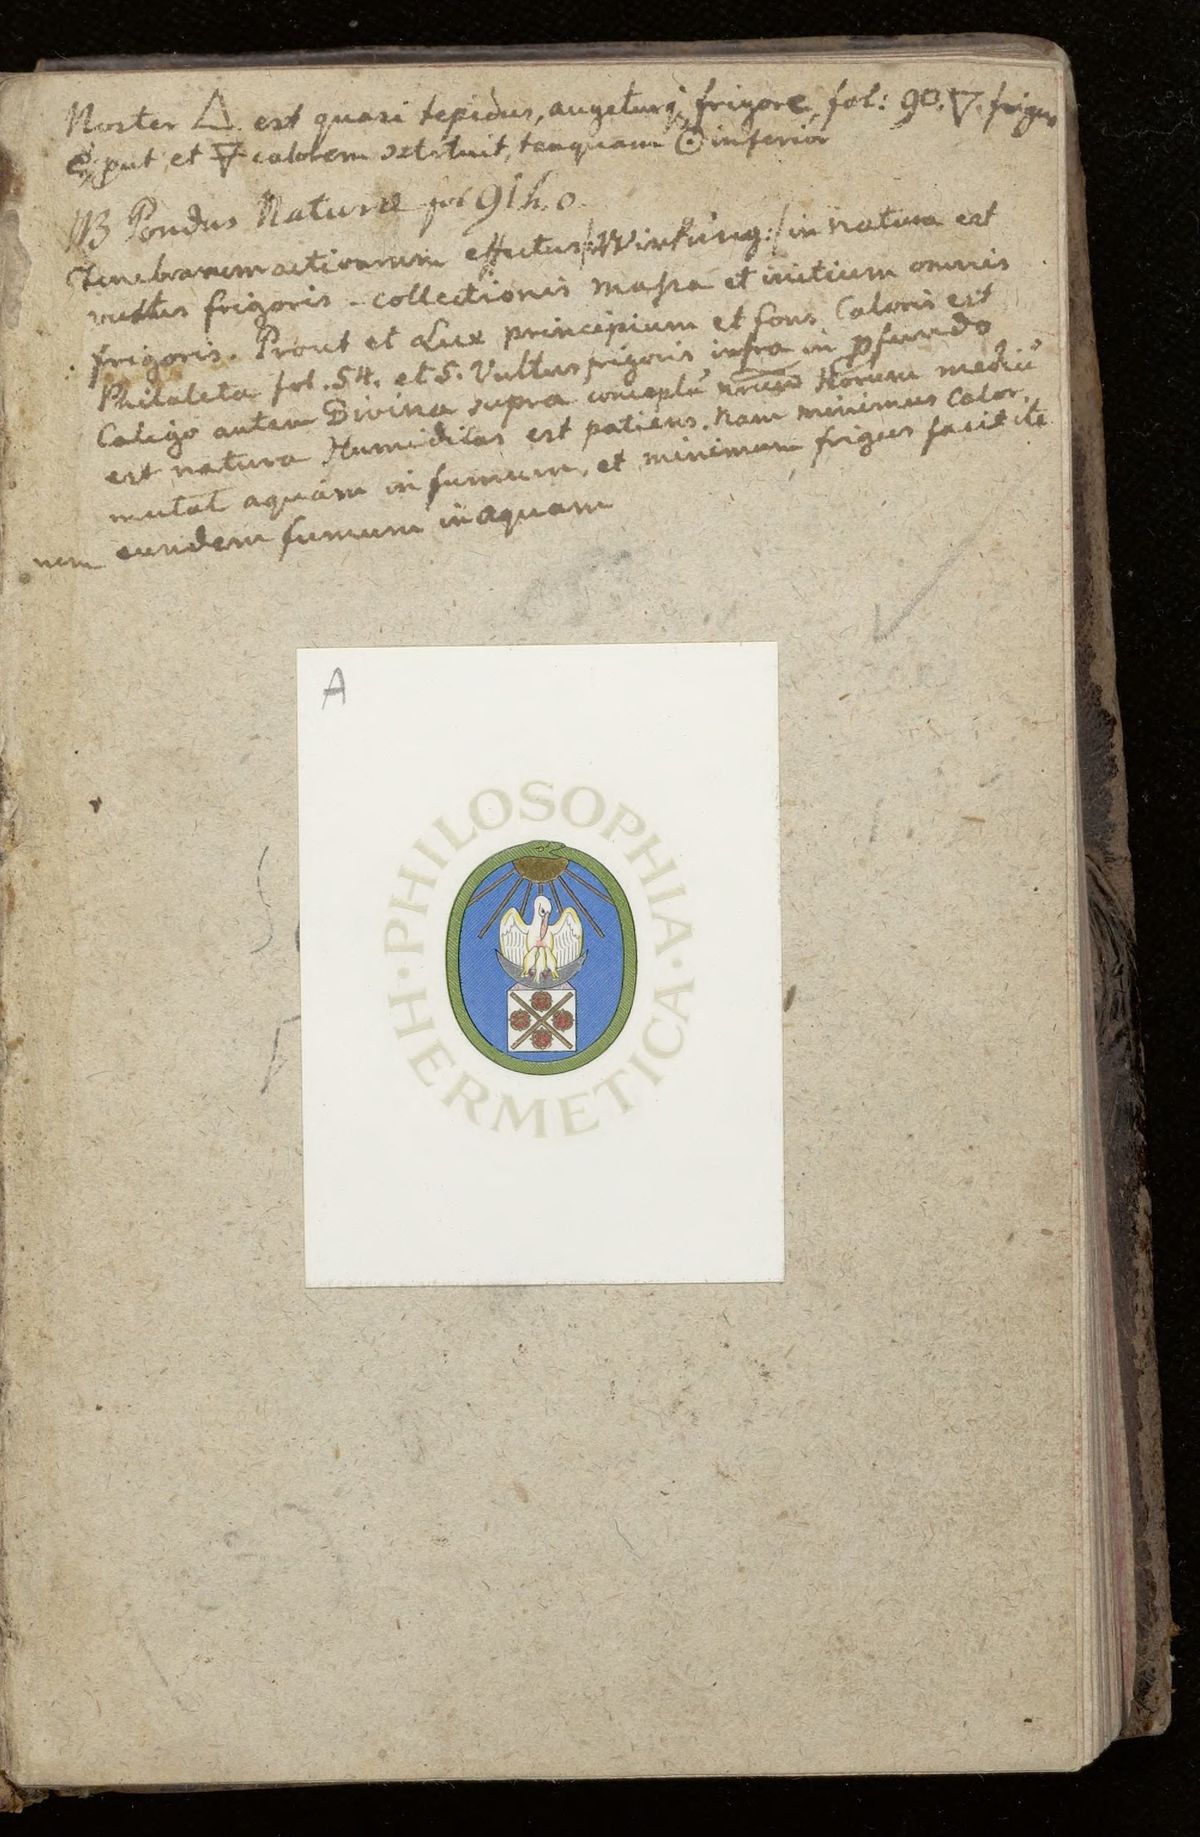 Noster 🜂 est quasi tepidus, augeturq; frigore, fol: 90. 🜄. frigus
put et 🜃 calorem tanquam ☉ inferior
NB Pondus Naturæ fol 91 h. o.
Tenebrarum activarum effectus /:Wirkung:/ in natura est
vultus frigoris - collectionis massa et initium omnis
frigoris. Prout et Lux principium et fons Caloris est
Philaleta fol. 54. et 5. Vultus frigoris infra in profundo
Caligo autem Divina supra conceptū nrum Horum mediū
est natura Humiditas est patiens. Nam minimus Calor,
mutat aquam in fumum, et minimum frigus facit ite
rum eundem fumum in aquam
A
PHILOSOPHIA · HERMETICA ·